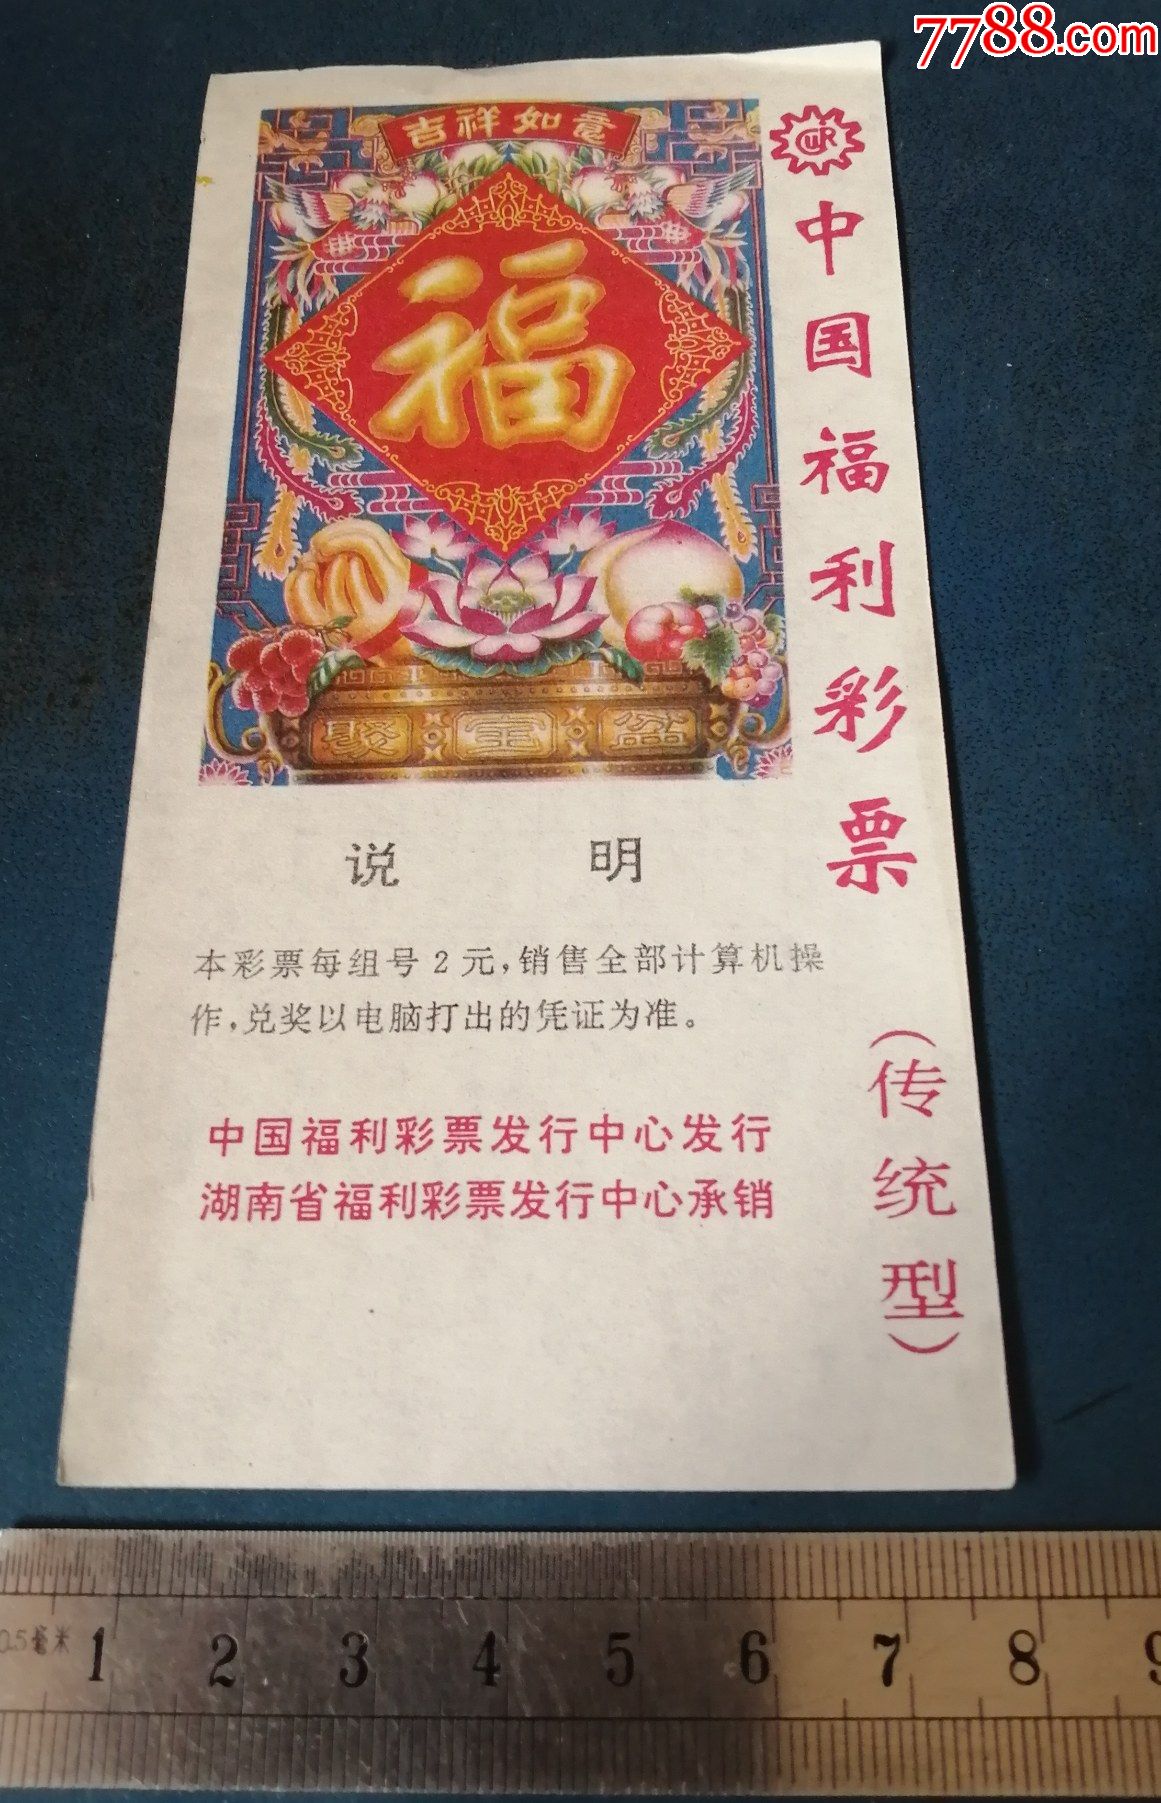 7788.com
吉祥如意
福
聚宝盆
中国福利彩票
(传统型)
说 明
本彩票每组号2元,销售全部计算机操
作,兑奖以电脑打出的凭证为准。
中国福利彩票发行中心发行
湖南省福利彩票发行中心承销
0.5毫米 1 2 3 4 5 6 7 8 9